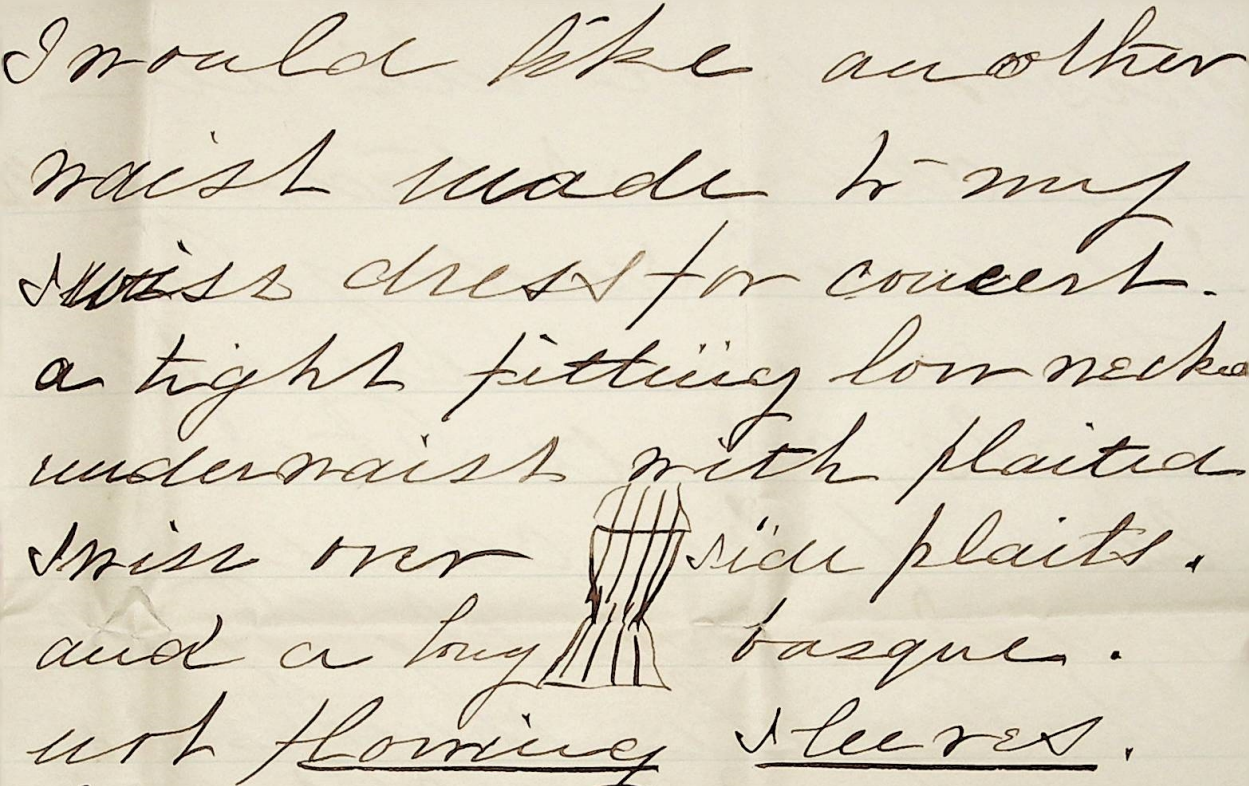 I would like another
waist made to my
swiss dress for concert.
a tight fitting low necked
underwaist with plaited
swiss over side plaits.
and a long basque.
not flowing sleeves.